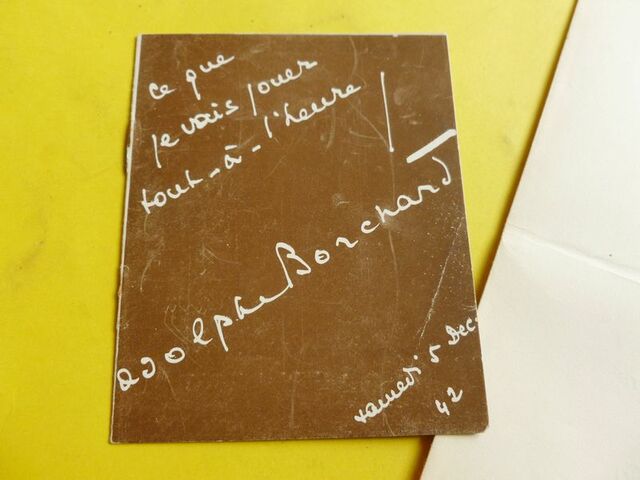 ce que
je vais jouer
tout-à-l'heure
adolphe Borchard
samedi 5 Dec
42